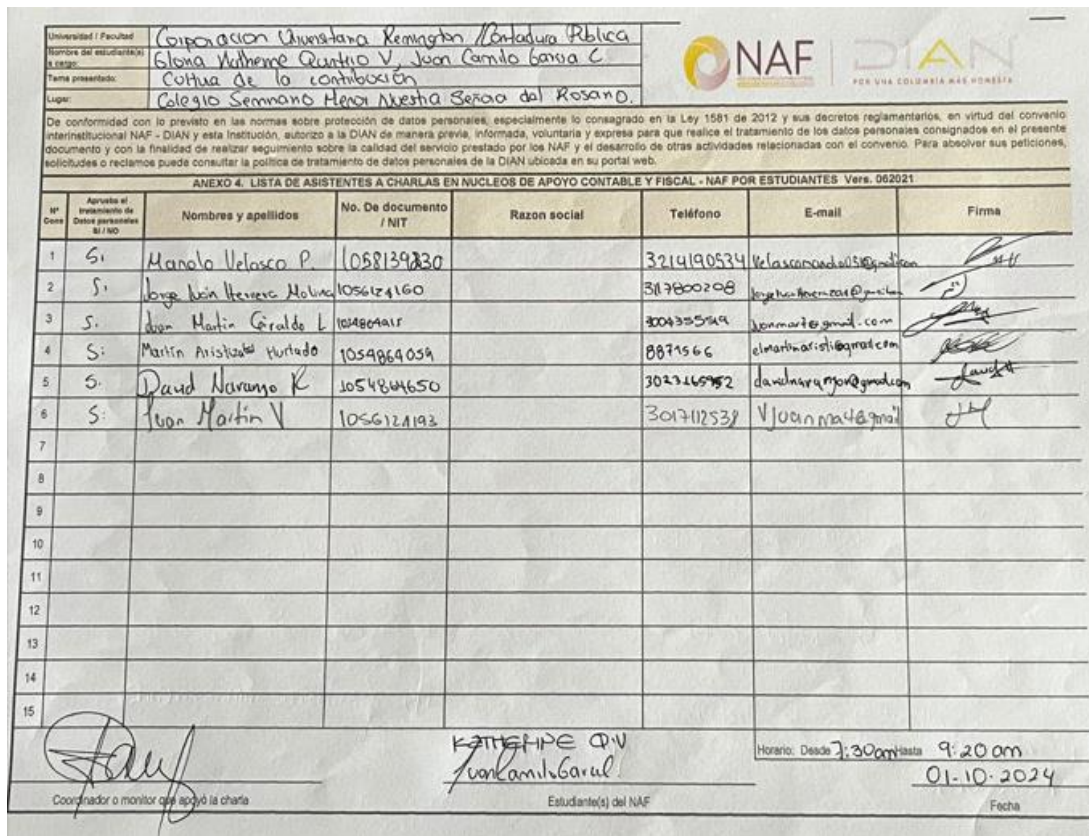 Universidad / Facultad Corporacion Universitaria Remington / Contadura Pública
Nombre del estudiante(s) a cargo: Gloria Katherine Quintero V, Juan Camilo Garcia C
Tema presentado: Cultua de la contribución
Lugar: Colegio Seminario Menor Nuestra Señora del Rosario.
NAF
DIAN
POR UNA COLOMBIA MÁS HONESTA
De conformidad con lo previsto en las normas sobre protección de datos personales, especialmente lo consagrado en la Ley 1581 de 2012 y sus decretos reglamentarios, en virtud del convenio
interinstitucional NAF - DIAN y esta Institución, autorizo a la DIAN de manera previa, informada, voluntaria y expresa para que realice el tratamiento de los datos personales consignados en el presente
documento y con la finalidad de realizar seguimiento sobre la calidad del servicio prestado por los NAF y el desarrollo de otras actividades relacionadas con el convenio. Para absolver sus peticiones,
solicitudes o reclamos puede consultar la política de tratamiento de datos personales de la DIAN ubicada en su portal web.
ANEXO 4. LISTA DE ASISTENTES A CHARLAS EN NUCLEOS DE APOYO CONTABLE Y FISCAL - NAF POR ESTUDIANTES Vers. 062021
N° Cons Aprueba el tratamiento de Datos personales SI / NO Nombres y apellidos No. De documento / NIT Razon social Teléfono E-mail Firma
1 Si Manolo Velasco P. 1058139830 3214190534
2 Si Jorge Iván Herrera Molina 1056124160 3117800208
3 Si Juan Martin Giraldo L
4 Si Martin Aristizabal Hurtado 1054864059 8871566 elmartinaristi@gmail.com
5 Si David Naranjo R 1054864650 3023165952
6 Si Juan Martin V 1056121193 3017112538 Vjuanma4@gmail
7
8
9
10
11
12
13
14
15
KATHERINE Q.V
Juan Camilo Garcia C.
Horario: Desde 7:30am Hasta 9:20am
01-10-2024
Coordinador o monitor que apoyó la charla Estudiante(s) del NAF Fecha